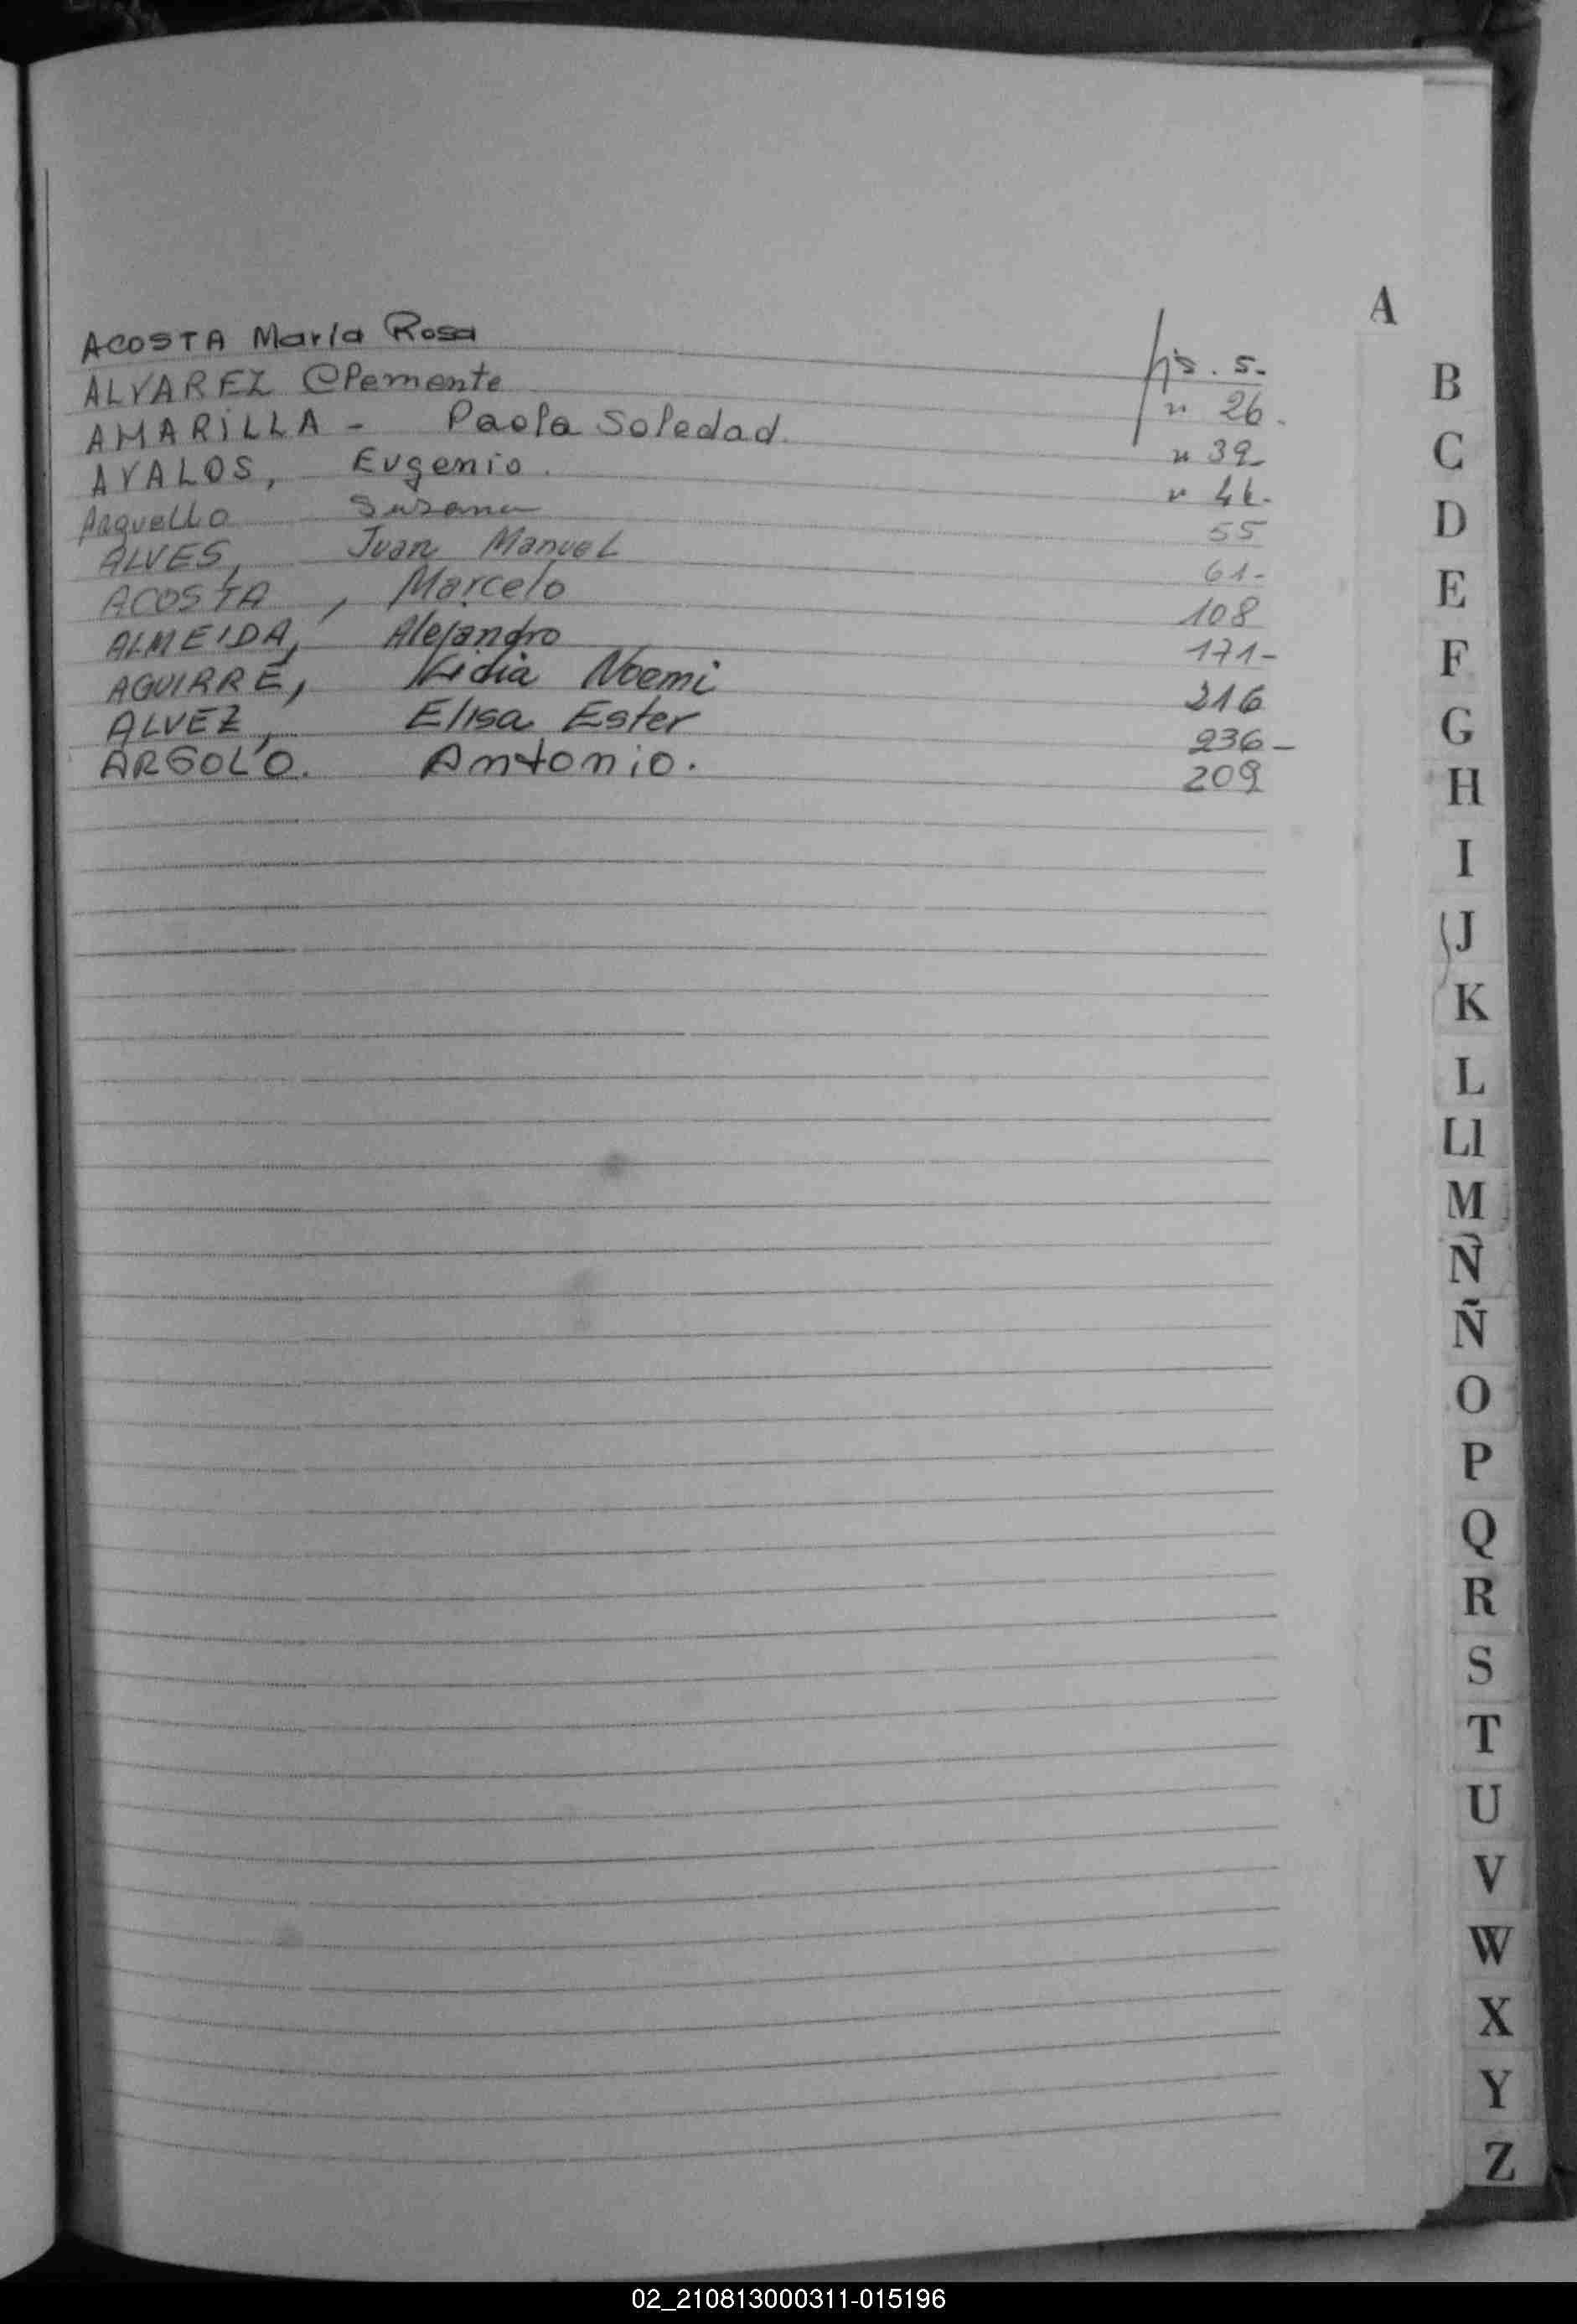 ACOSTA María Rosa fjs. 5.-
ALVAREZ Clemente " 26.
AMARILLA - Paola Soledad " 39-
AVALOS, Eugenio. "
Arguello Susana 55
ALVES, Juan Manuel 61-
ACOSTA, Marcelo 108
ALMEIDA, Alejandro 171-
AGUIRRE, Lidia Noemi 216
ALVEZ, Elisa Ester 236-
ARGOLO. Antonio. 209
A
B
C
D
E
F
G
H
I
J
K
L
Ll
M
N
Ñ
O
P
Q
R
S
T
U
V
W
X
Y
Z
02_210813000311-015196